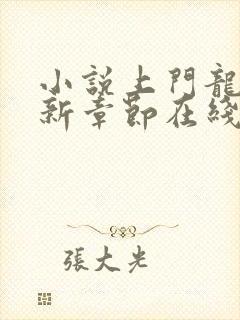 小說上門龍
新章節在綫
張大光